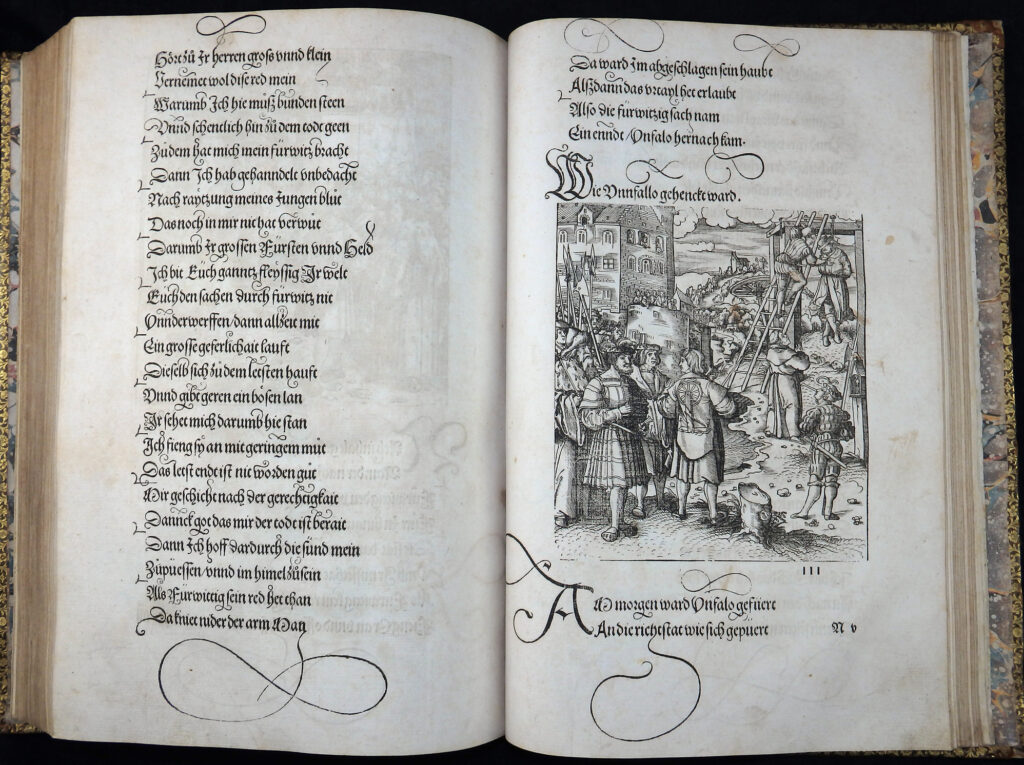 Hört zů Ir herren gross vnnd klein
Vernemet wol dise red mein
Warumb Ich hie můsz bunden steen
Vnnd schentlich hin zů dem tode geen
Zů dem hat mich mein fürwitz bracht
Dann Ich hab gehanndelt vnbedacht
Nach raytzung meines Jungen blůt
Das noch in mir nie hat verwůt
Darumb Ir grossen Fürsten vnnd Held
Ich bit Euch ganntz fleyssig Ir welt
Euch den sachen durch fürwitz nit
Vnnderwerffen / dann allzeit mit
Ein grosse geferlichait lauft
Dieselb sich zů dem letsten hauft
Vnnd gibt geren ein bösen lan
Ir sehet mich darumb hie stan
Ich fieng sy an mit geringem můt
Das letst endt ist nit worden gůt
Mir geschicht nach der gerechtigkait
Danck got das mir der todt ist berait
Dann Ich hoff dardurch die sünd mein
Zůpuessen / vnnd im himel zů sein
Als Fürwittig sein red het than
Da kniet nider der arm Man
Da ward Im abgeschlagen sein haubt
Alszdann das vrtayl het erlaubt
Also die fürwitzig sach nam
Ein enndt / Vnfalo hernach kam.
Wie Vnnfallo gehenckt ward.
111
AM morgen ward Vnfalo gefüert
An die richtstat wie sich gepüert
N v